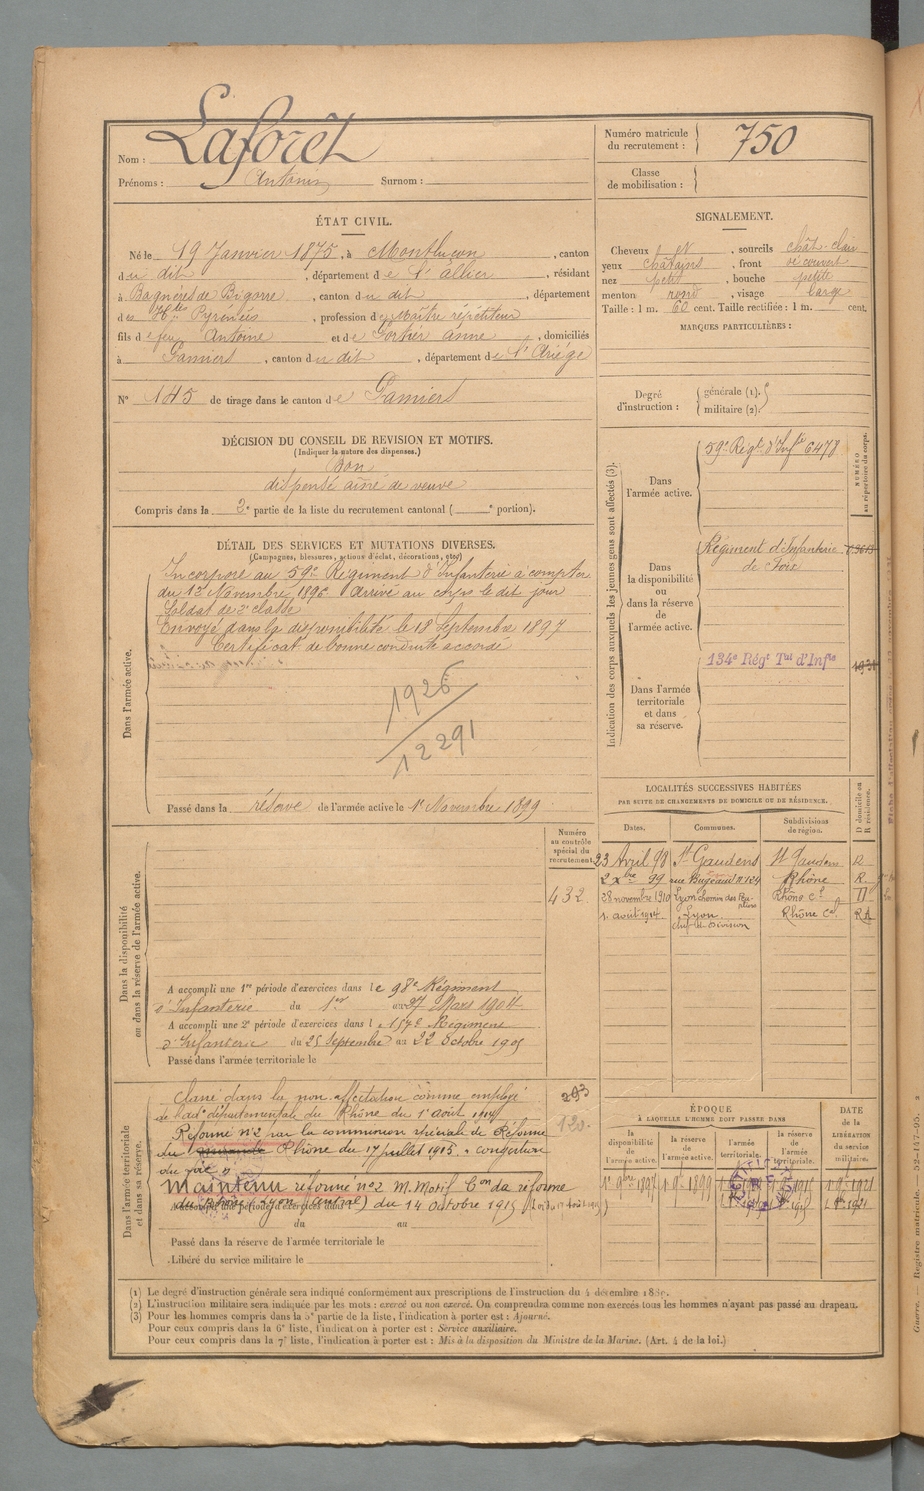 Nom : Laforêt
Prénoms : Antonin Surnom :
Numéro matricule du recrutement : 750
Classe de mobilisation :
ÉTAT CIVIL.
Né le 19 Janvier 1875, à Montluçon, canton
du dit, département de l'allier, résidant
à Bagnères de Bigorre, canton du dit, département
des Htes Pyrénées, profession de Maître répétiteur
fils de feu Antoine et de Fortier anne, domiciliés
à Pamiers, canton du dit, département de l'Ariége
N° 145 de tirage dans le canton de Pamiers
SIGNALEMENT.
Cheveux et, sourcils chât-clair
yeux châtains, front découvert
nez petit, bouche petite
menton rond, visage large
Taille : 1 m. 60 cent. Taille rectifiée : 1 m. cent.
MARQUES PARTICULIÈRES :
Degré d'instruction : générale (1). militaire (2).
DÉCISION DU CONSEIL DE REVISION ET MOTIFS.
(Indiquer la nature des dispenses.)
Bon
dispensé aîné de veuve
Compris dans la 2e partie de la liste du recrutement cantonal ( e portion).
DÉTAIL DES SERVICES ET MUTATIONS DIVERSES.
(Campagnes, blessures, actions d'éclat, décorations, etc.)
Dans l'armée active.
Incorporé au 59e Régiment d'Infanterie à compter
du 12 Novembre 1896. Arrivé au corps le dit jour
Soldat de 2e classe
Envoyé dans la disponibilité le 18 Septembre 1897
Certificat de bonne conduite accordé
1926
12291
Passé dans la réserve de l'armée active le 1er Novembre 1899
Indication des corps auxquels les jeunes gens sont affectés (3).
NUMÉRO au répertoire du corps.
Dans l'armée active.
59e Régt d'Infie 6478
Dans la disponibilité ou dans la réserve de l'armée active.
Régiment d'Infanterie
de Foix
Dans l'armée territoriale et dans sa réserve.
134e Régt Tal d'Infie
LOCALITÉS SUCCESSIVES HABITÉES
PAR SUITE DE CHANGEMENTS DE DOMICILE OU DE RÉSIDENCE.
Dates. Communes. Subdivisions de région. D domicile ou R résidence.
23 Avril 98 St Gaudens St Gaudens R
2 Xbre 99 rue Bugeaud n° 124 Rhône R
28 novembre 1910 Lyon chemin des Rhône Cl
1. août 1914 Lyon Rhône Cl
chef de Division
Dans la disponibilité ou dans la réserve de l'armée active.
Numéro au contrôle spécial du recrutement
432
A accompli une 1re période d'exercices dans le 98e Régiment
d'Infanterie du 1er au 27 Mars 1904
A accompli une 2e période d'exercices dans le 157e Régiment
d'Infanterie du 25 Septembre au 22 Octobre 1905
Passé dans l'armée territoriale le
Dans l'armée territoriale et dans sa réserve.
Classé dans la non affectation comme employé
de l'adon départementale du Rhône du 1er août 1914
Réformé n° 2 par la commission spéciale de Réforme
du Rhône du 17 juillet 1915
du foie
Maintenu réformé n° 2 M. Motif Con de réforme
du Rhône (Lyon Central) du 14 Octobre 1915
A accompli une période d'exercices dans l
du au
Passé dans la réserve de l'armée territoriale le
Libéré du service militaire le
293
120.
ÉPOQUE
À LAQUELLE L'HOMME DOIT PASSER DANS
DATE de la LIBÉRATION du service militaire.
la disponibilité de l'armée active. la réserve de l'armée active. l'armée territoriale. la réserve de l'armée territoriale.
(1) Le degré d'instruction générale sera indiqué conformément aux prescriptions de l'instruction du 4 décembre 1889.
(2) L'instruction militaire sera indiquée par les mots : exercé ou non exercé. On comprendra comme non exercés tous les hommes n'ayant pas passé au drapeau.
(3) Pour les hommes compris dans la 5e partie de la liste, l'indication à porter est : Ajourné.
Pour ceux compris dans la 6e liste, l'indication à porter est : Service auxiliaire.
Pour ceux compris dans la 7e liste, l'indication à porter est : Mis à la disposition du Ministre de la Marine. (Art. 4 de la loi.)
Guerre. — Registre matricule. 52-147-95.